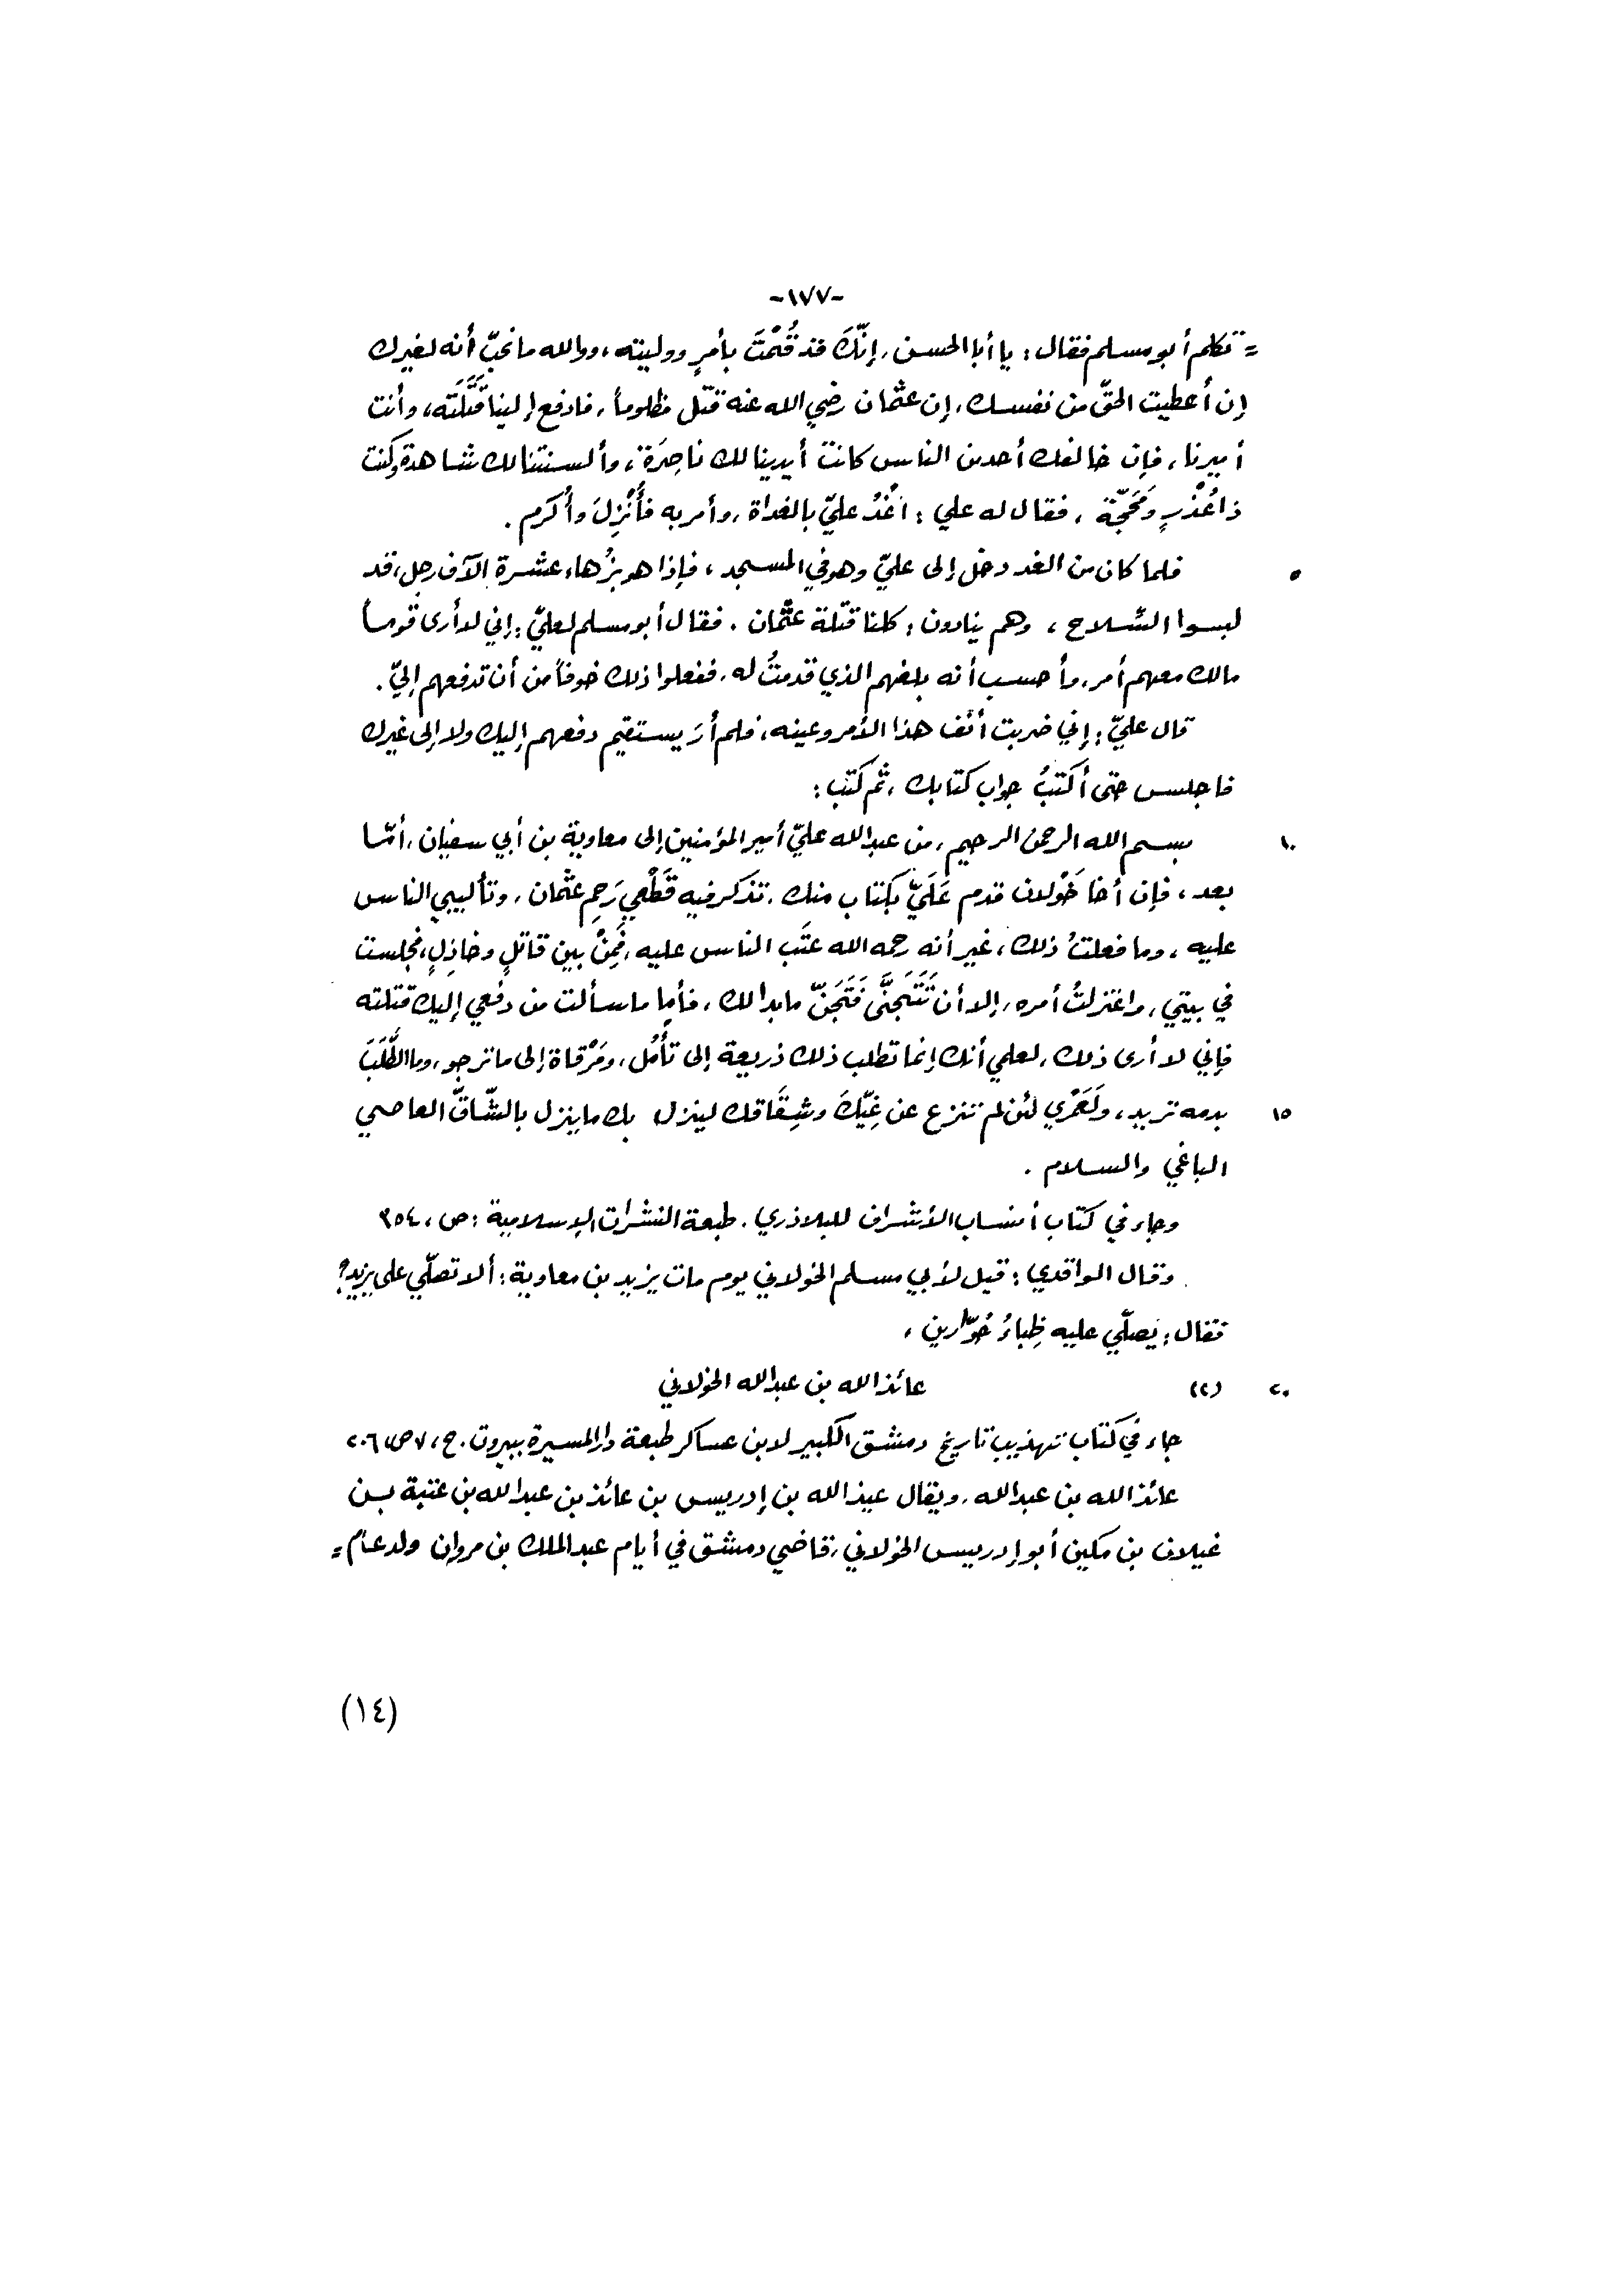 -١٧٧-
= تكلم أبو مسلم فقال: يا أبا الحسن، إنَّكَ قد قُمْتَ بأمرٍ ووليته، ووالله ما نحبّ أنه لغيرك
إن أعطيت الحقّ من نفسك، إن عثمان رضي الله عنه قتل مظلوماً، فادفع إلينا قَتَلَتَه، وأنت
أميرنا، فإن خالفك أحد من الناس كانت أيدينا لك ناصِرَة، وألسنتنا لك شاهدة وكنت
ذا عُذْرٍ وَحُجّة، فقال له علي: اغْدُ عليّ بالغداة، وأمر به فأُنْزِلَ وأُكرم.
٥ فلما كان من الغد دخل إلى عليّ وهو في المسجد، فإذا هو بزُهاء عشرة آلاف رجل، قد
لبسوا السّلاح، وهم ينادون: كلنا قتلة عثمان. فقال أبو مسلم لعليّ: إني لأرى قوماً
مالك معهم أمر، وأحسب أنه بلغهم الذي قدمتُ له، ففعلوا ذلك خوفاً من أن تدفعهم إليّ.
قال عليّ: إني ضربت أنف هذا الأمر وعينه، فلم أرَ يستقيم دفعهم إليك ولا إلى غيرك
فاجلس حتى أكتبُ جواب كتابك، ثم كتب:
١٠ بسم الله الرحمن الرحيم، من عبد الله عليّ أمير المؤمنين إلى معاوية بن أبي سفيان، أمّا
بعد، فإن أخا خَوْلان قدم عَلَيَّ بكتاب منك، تذكر فيه قَطْعي رَحِم عثمان، وتأليبي الناس
عليه، وما فعلتُ ذلك، غير أنه رحمه الله عتَب الناس عليه، فَمِنْ بين قاتلٍ وخاذِلٍ، فجلست
في بيتي، واعتزلتُ أمره، إلا أن تَتَجَنَّى فَتَجَنّ ما بدا لك، فأما ما سألت من دفعي إليك قتلته
فإني لا أرى ذلك، لعلمي أنك إنما تطلب ذلك ذريعة إلى تأمُل، ومَرْقاة إلى ما ترجو، وما الطَّلَبَ
١٥ بدمه تريد، ولَعَمْري لئن لم تنزع عن غِيّكَ وشِقَاقك لينزل بك ما ينزل بالشّاقّ العاصي
الباغي والسلام.
وجاء في كتاب أنساب الأشراف للبلاذري. طبعة النشرات الإسلامية: ص، ٣٥٤
وقال الواقدي: قيل لأبي مسلم الخولاني يوم مات يزيد بن معاوية: ألا تصلّي على يزيد؟
فقال: يَصلّي عليه ظِباءُ حُوّارين،
٢٠ (٢) عائذ الله بن عبد الله الخولاني
جاء في كتاب تهذيب تاريخ دمشق الكبير لابن عساكر طبعة دار المسيرة ببيروت. ج، ٧ ص، ٢٠٦
عائذ الله بن عبد الله، ويقال عيذ الله بن إدريس بن عائذ بن عبد الله بن عتبة بن
غيلان بن مكين أبو إدريس الخولاني، قاضي دمشق في أيام عبد الملك بن مروان ولد عام =
(١٤)